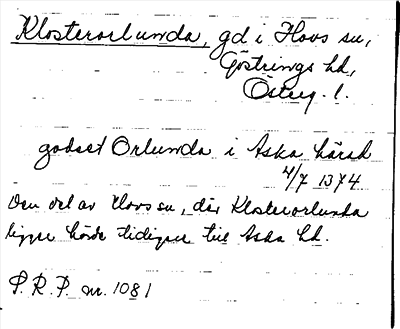 Klosterorlunda, gd i Hovs sn,
Göstrings hd,
Österg. l.
godset Orlunda i Aska härad
4/7 1374
Den del av Hovs sn, där Klosterorlunda
ligger hörde tidigare till Aska hd.
P. R. P. nr. 1081